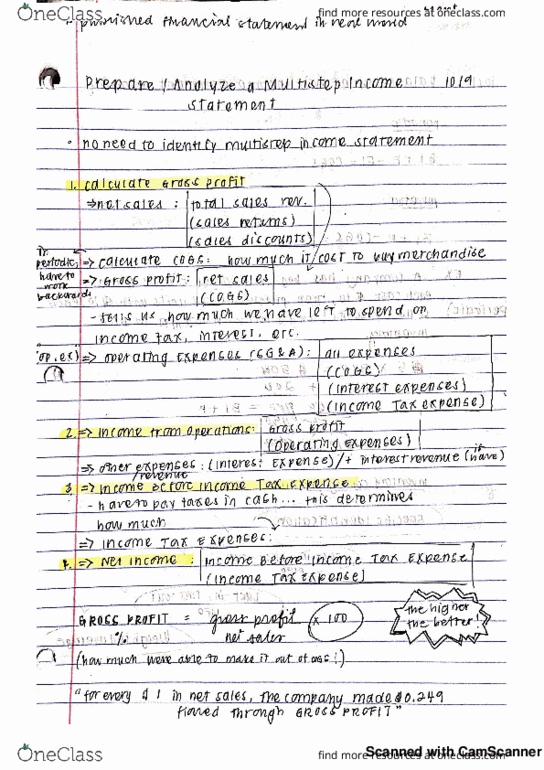 OneClass
find more resources at oneclass.com
published financial statement in real world
Prepare / Analyze a Multistep Income 10/9
Statement
• no need to identify multistep income statement
1. calculate Gross profit
⇒ net sales : total sales rev.
(sales returns)
(sales discounts)
In periodic, have to work backwards
⇒ calculate COGS: how much it cost to buy merchandise
⇒ Gross profit: net sales
(COGS)
- tells us how much we have left to spend on
income tax, interest, etc.
(op. ex) ⇒ operating expenses (SG&A): all expenses
(COGS)
(interest expenses)
(Income Tax expense)
2. ⇒ Income from Operations: Gross profit
(Operating Expenses)
⇒ other expenses/revenue : (Interest Expense) / + interest revenue (if have)
3 ⇒ Income Before Income Tax Expense
- have to pay taxes in cash... this determines
how much
⇒ Income Tax Expenses:
4. ⇒ Net Income : Income Before Income Tax Expense
(Income Tax Expense)
GROSS PROFIT % = gross profit / net sales x 100
the higher the better!
(how much were able to make it out of OGS!)
"for every $1 in net sales, the company made $0.249
flowed through GROSS PROFIT"
OneClass
find more resources at oneclass.com
Scanned with CamScanner